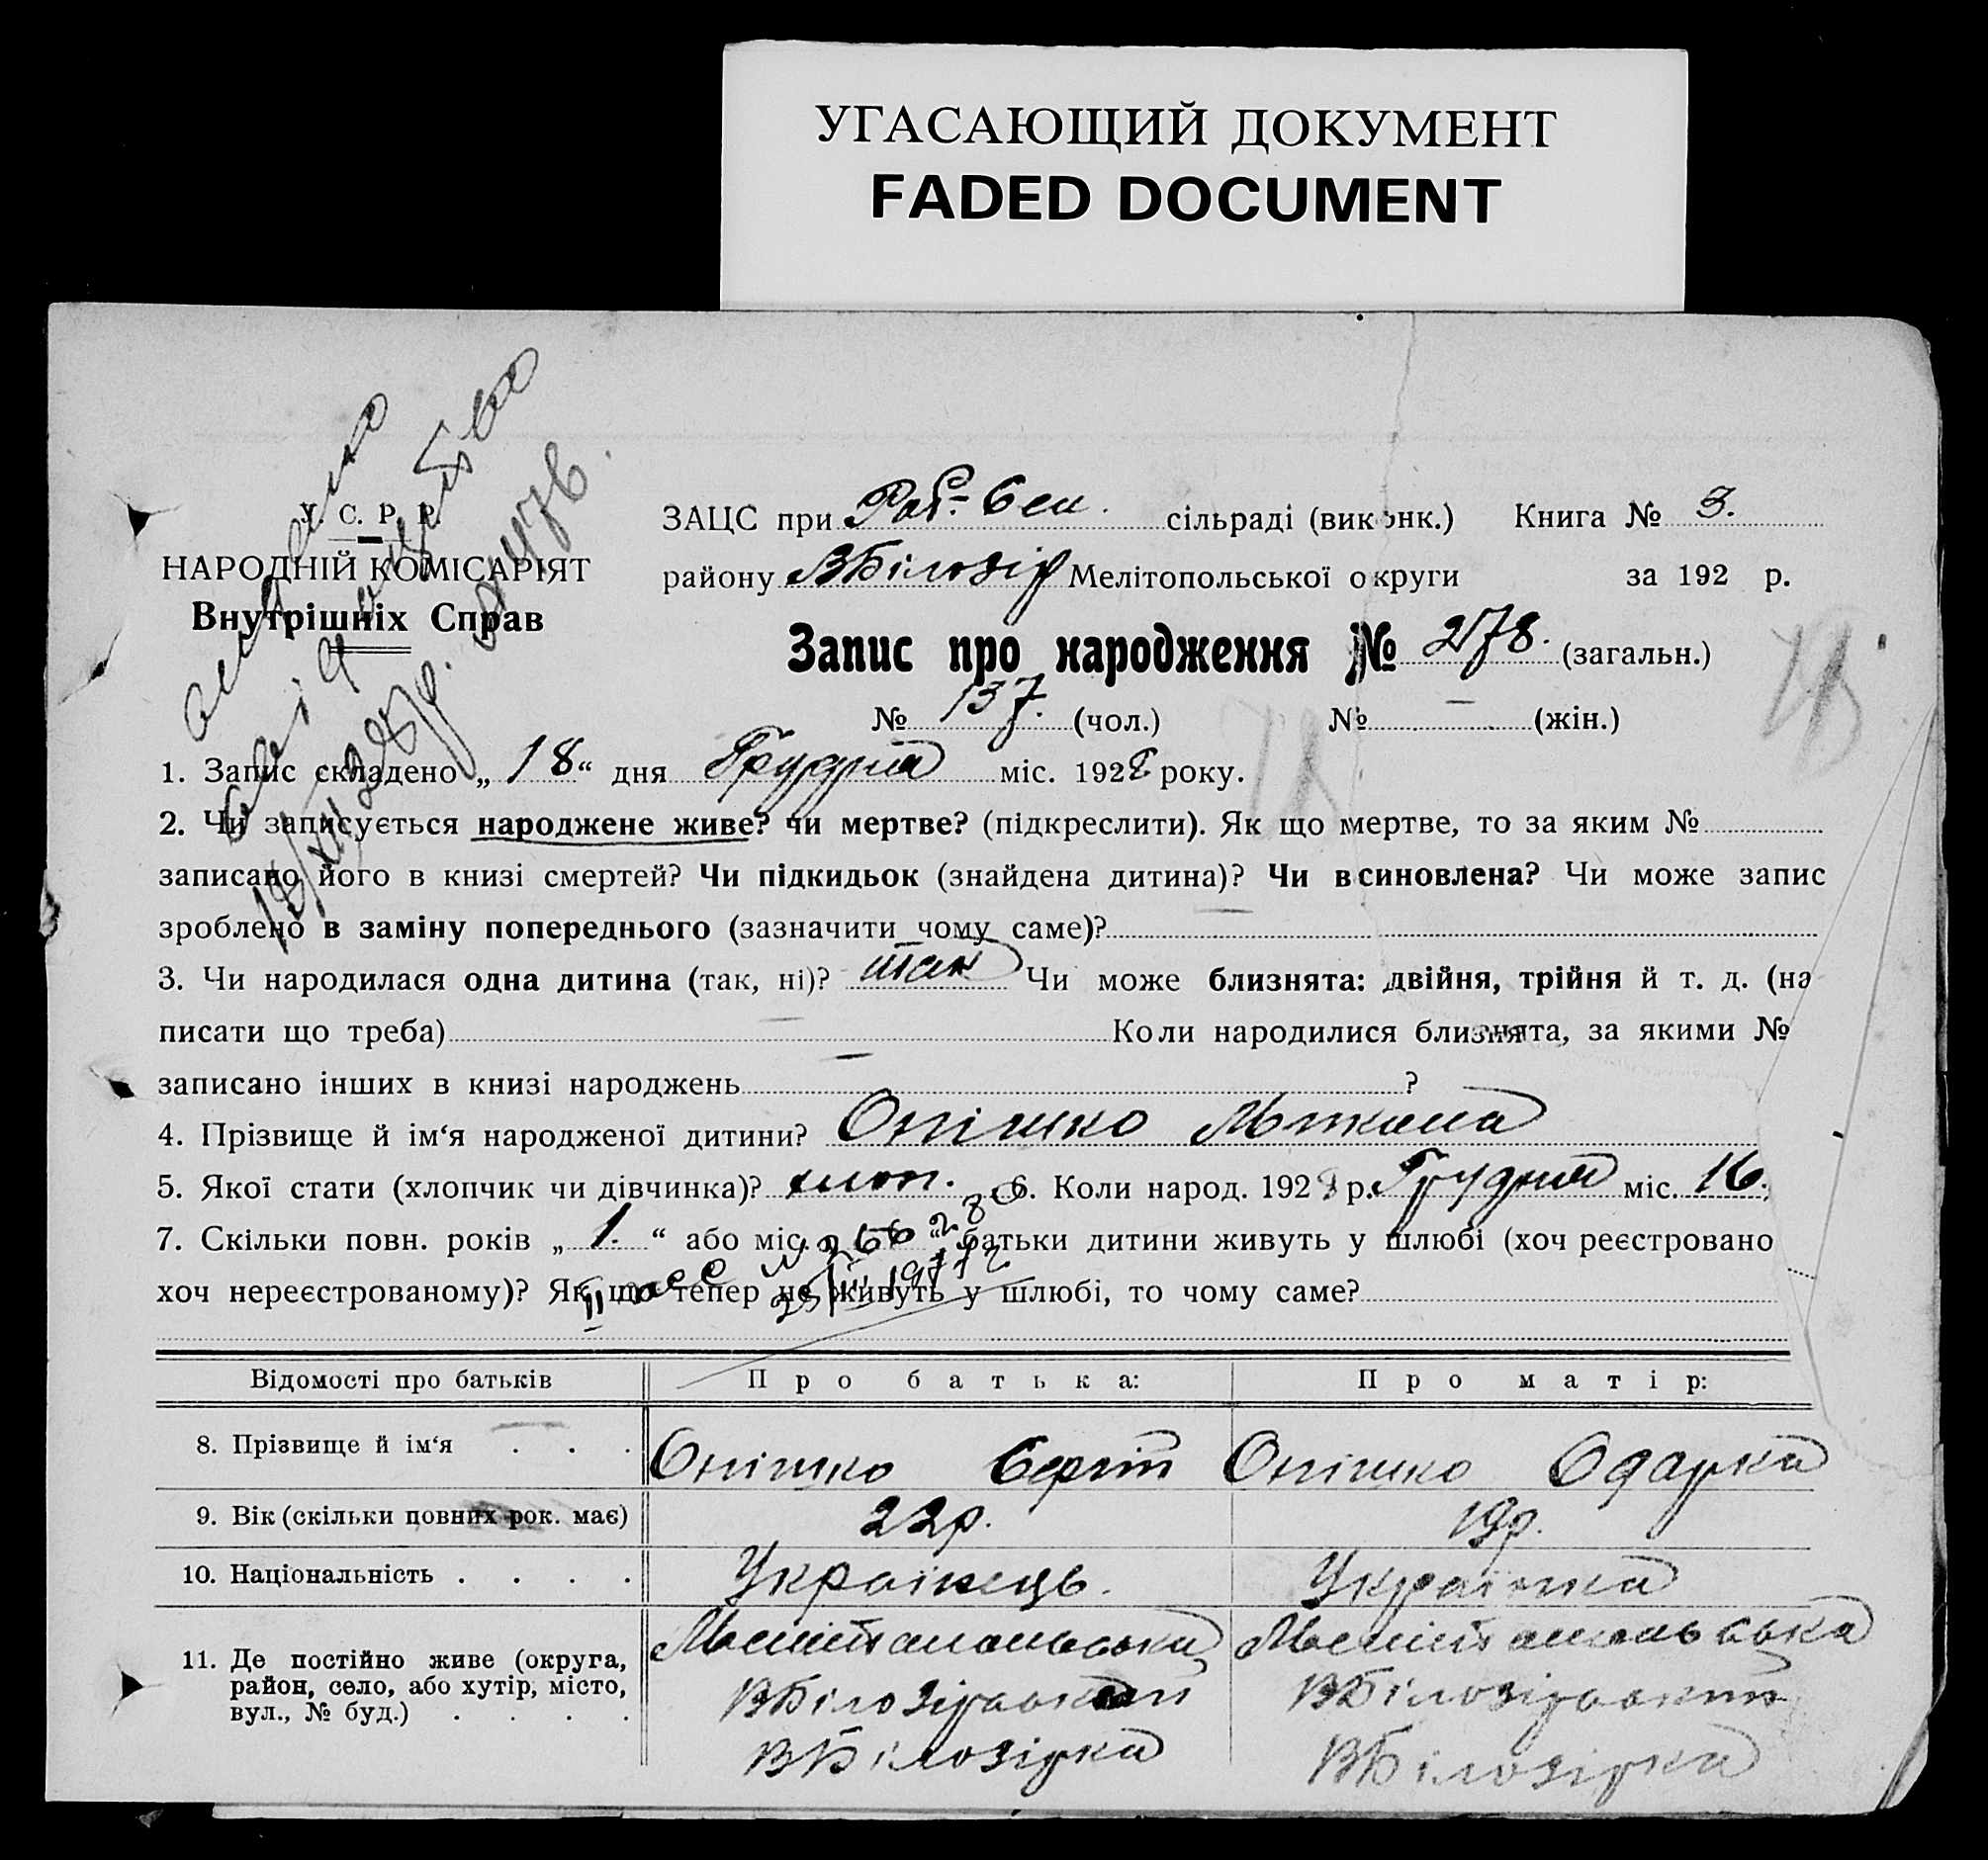 УГАСАЮЩИЙ ДОКУМЕНТ
FADED DOCUMENT
У. С. Р. Р.
НАРОДНІЙ КОМІСАРІЯТ
Внутрішніх Справ
ЗАЦС при Роб.-Сел. сільраді (виконк.) Книга № 3.
району ВБілозір Мелітопольської округи за 192 р.
Запис про народження № 278. (загальн.)
№ 137. (чол.) № – (жін.)
1. Запис складено „ 18 “ дня Грудня міс. 1928 року.
2. Чи записується народжене живе? чи мертве? (підкреслити). Як що мертве, то за яким №
записано його в книзі смертей? Чи підкидьок (знайдена дитина)? Чи всиновлена? Чи може запис
зроблено в заміну попереднього (зазначити чому саме)?
3. Чи народилася одна дитина (так, ні)? так Чи може близнята: двійня, трійня й т. д. (на
писати що треба) Коли народилися близнята, за якими №
записано інших в книзі народжень ?
4. Прізвище й ім‘я народженої дитини? Онішко Микола
5. Якої стати (хлопчик чи дівчинка)? хлоп. 6. Коли народ. 1928 р. Грудня міс. 16.
7. Скільки повн. років „ 1. “ або міс. батьки дитини живуть у шлюбі (хоч реєстровано
хоч нереєстрованому)? Як що тепер не живуть у шлюбі, то чому саме?
Відомості про батьків Про батька: Про матір:
8. Прізвище й ім‘я . . . Онішко Сергій Онішко Одарка
9. Вік (скільки повних рок. має) 22р. 19р.
10. Національність . . . . Українець. Українка
11. Де постійно живе (округа, район, село, або хутір, місто, вул., № буд.) . . . .
Мелітопольська Мелітопольська
ВБілозірський ВБілозірський
ВБілозірка ВБілозірка